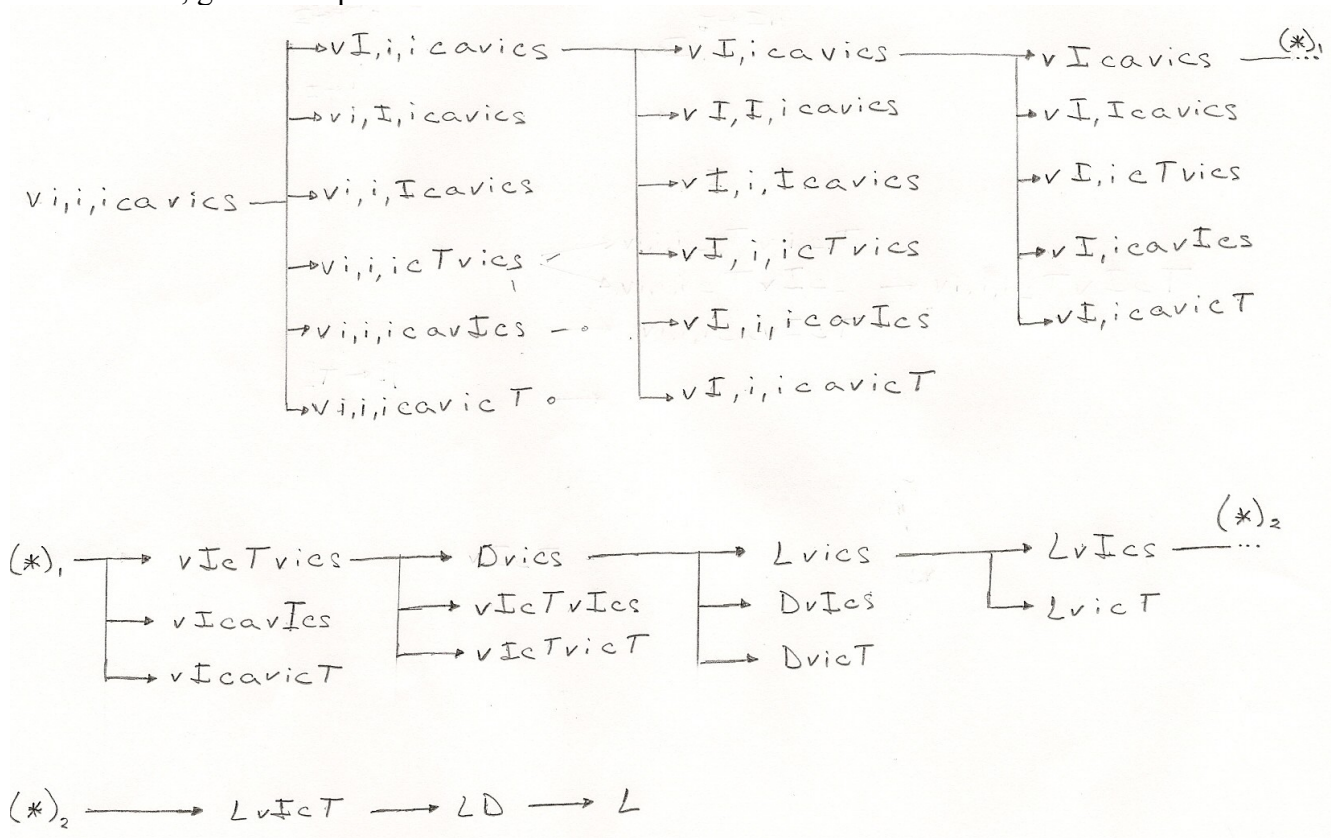 →vI,i,icavics → vI,icavics → vIcavics — (*)₁ ...
→vi,I,icavics →vI,I,icavics →vI,Icavics
vi,i,icavics →vi,i,Icavics →vI,i,Icavics →vI,icTvics
→vi,i,icTvics →vI,i,icTvics →vI,icavIcs
→vi,i,icavIcs →vI,i,icavIcs →vI,icavicT
→vi,i,icavicT →vI,i,icavicT
(*)₁ → vIcTvics → Dvics → Lvics → LvIcs — (*)₂ ...
→ vIcavIcs → vIcTvIcs → DvIcs → LvicT
→ vIcavicT → vIcTvicT → DvicT
(*)₂ → LvIcT → LD → L